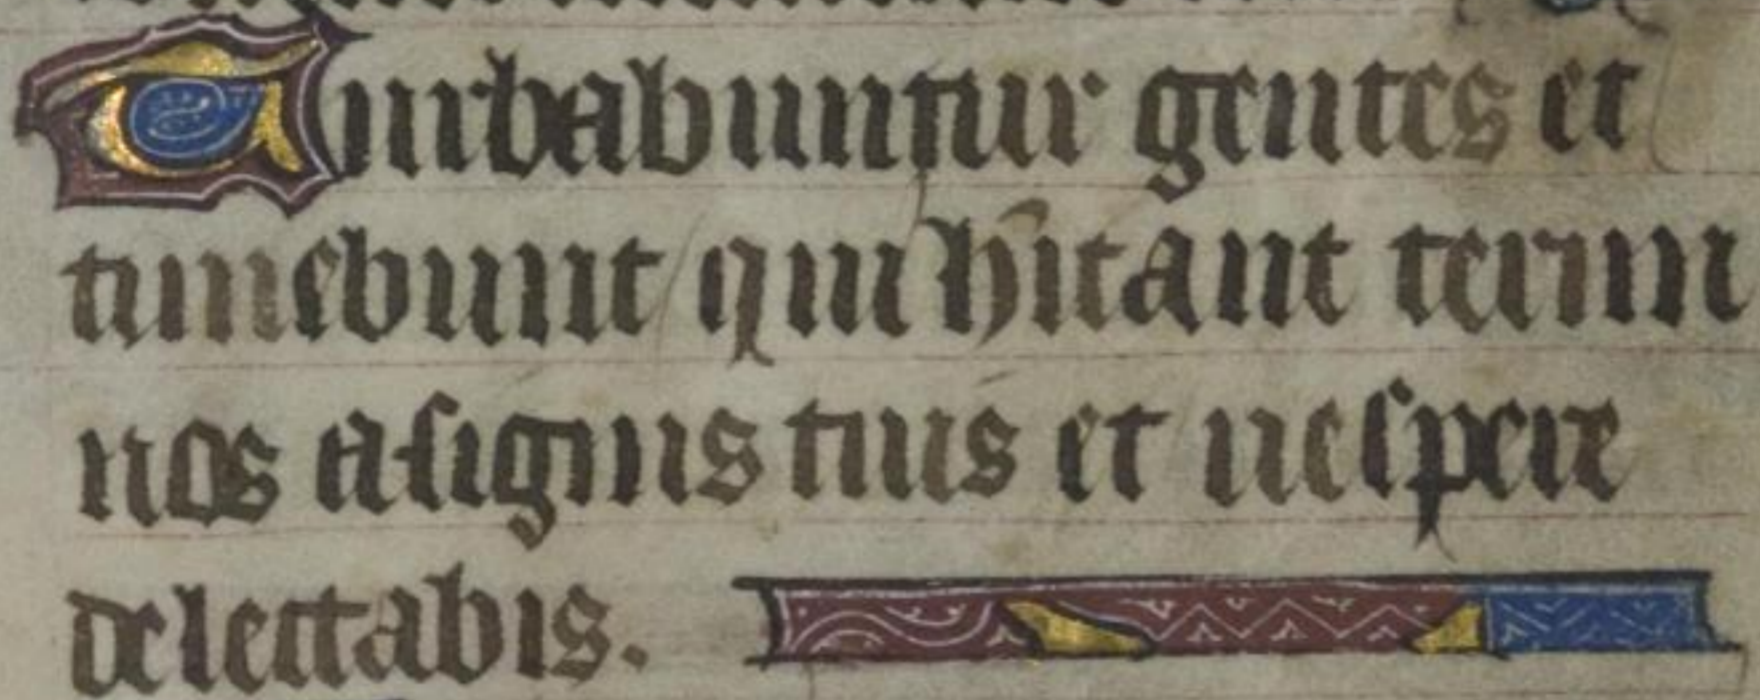 Turbabuntur gentes et
timebunt qui hītant termi
nos a signis tuis et uespere
delectabis.